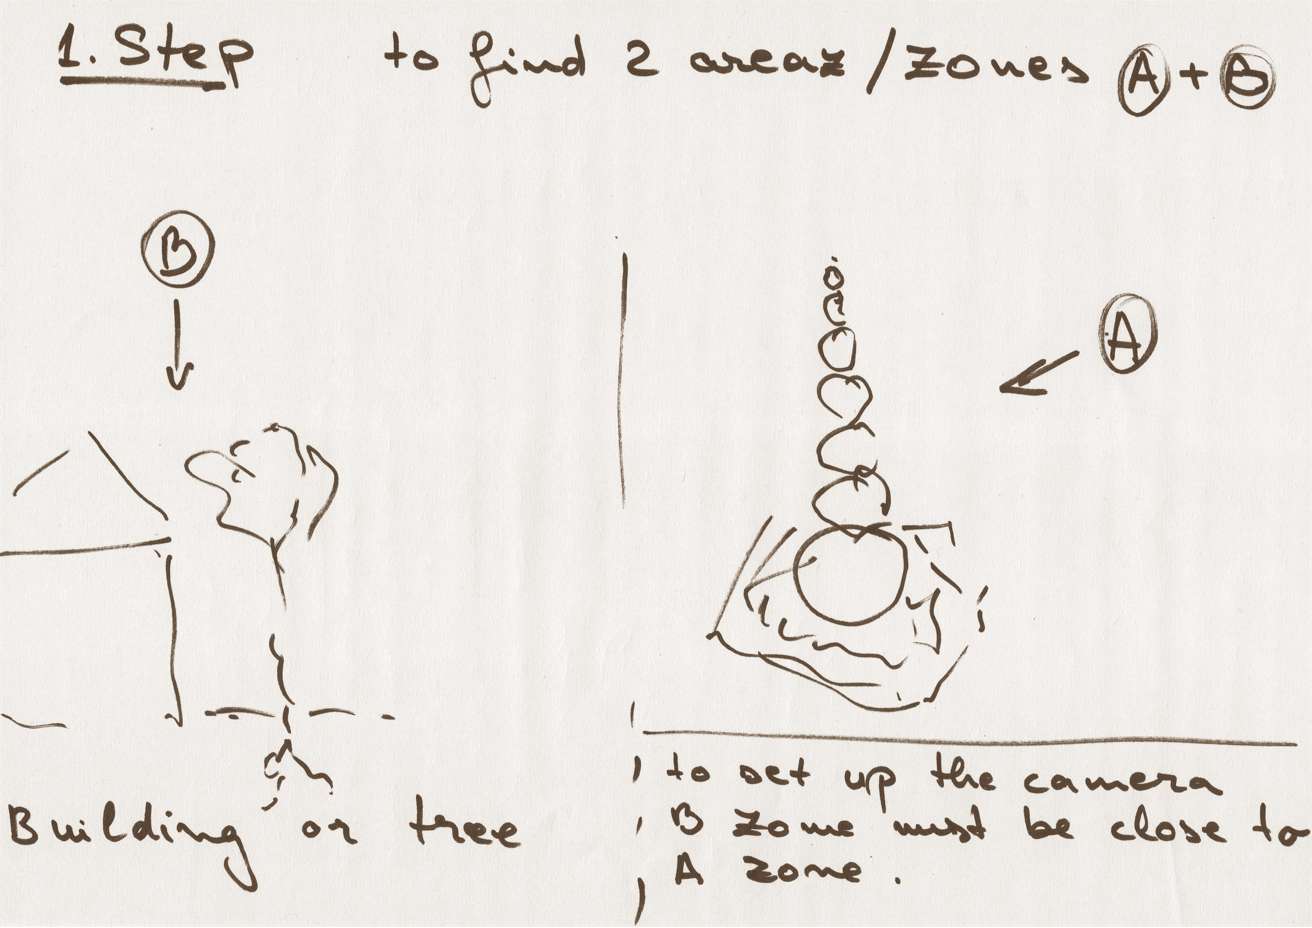 1. Step to find 2 areaz / Zones A + B
B
A
Building or tree
to set up the camera
B zone must be close to
A zone.